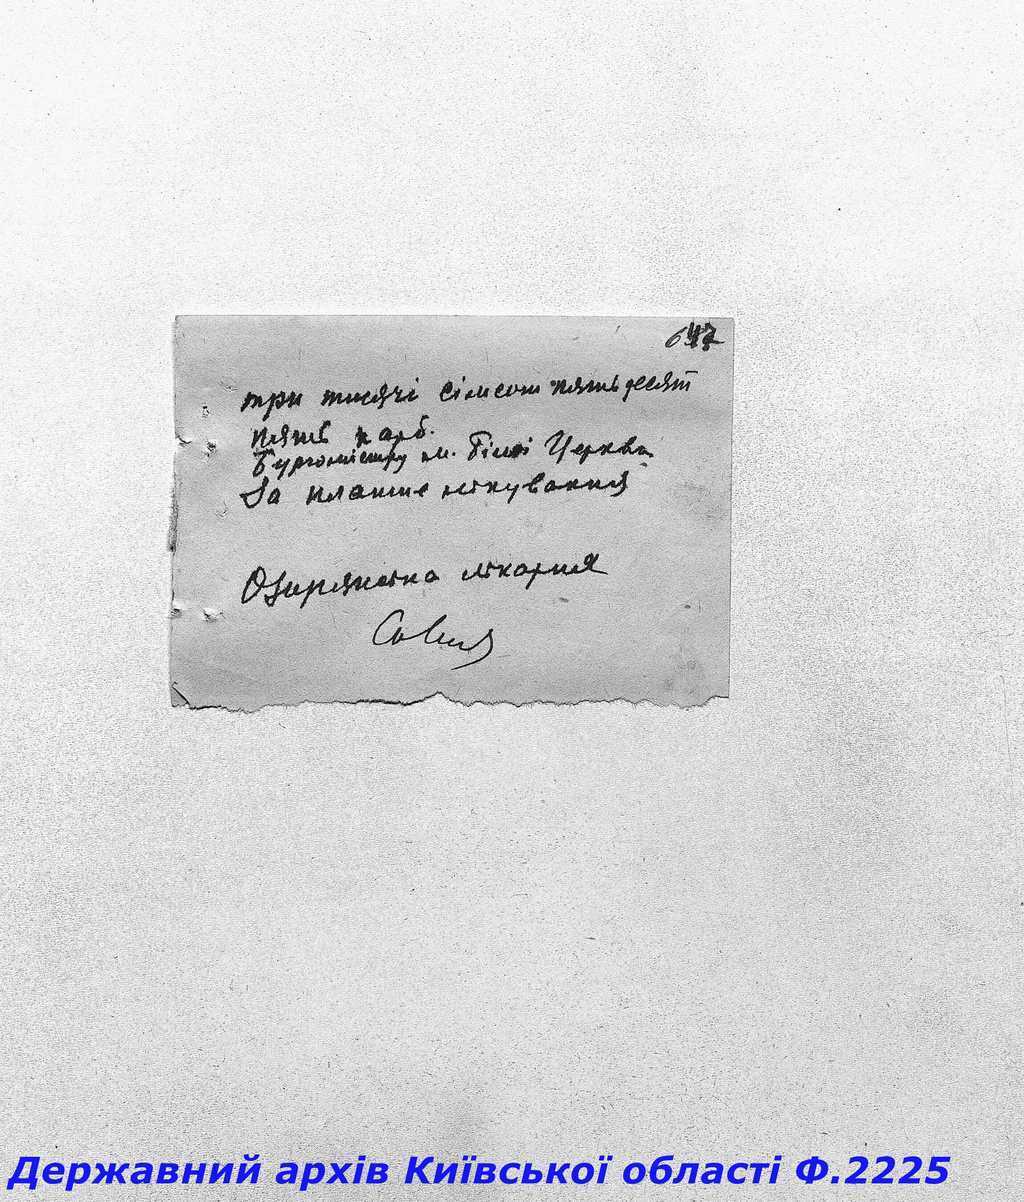 647
три тисячі сімсот пятьдесят
пять карб.
Бургомістру м. Білої Церкви
За платне лікування
Озирянська лікарня
Державний архів Київської області Ф.2225